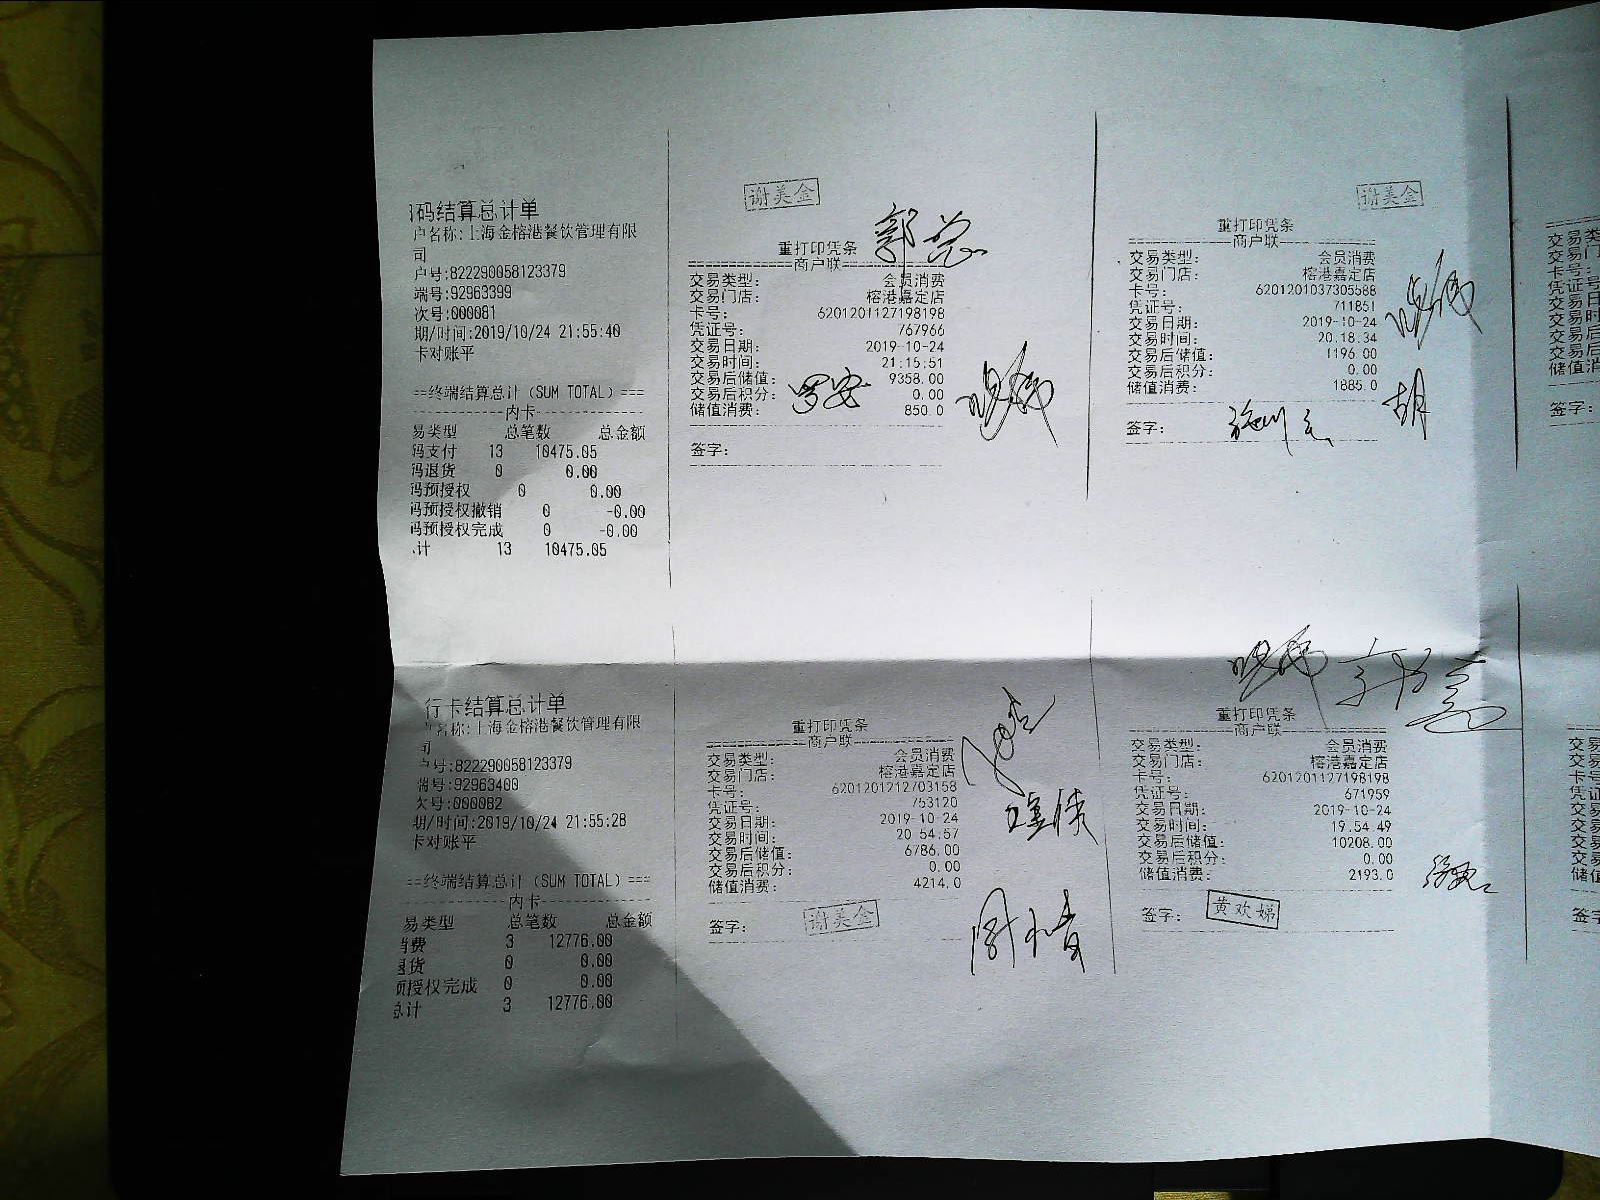 码结算总计单
户名称:上海金榕港餐饮管理有限
司
户号:822290058123379
端号:92963399
次号:000081
期/时间:2019/10/24 21:55:40
卡对账平
==终端结算总计(SUM TOTAL)===
内卡
易类型 总笔数 总金额
码支付 13 10475.05
码退货 0 0.00
码预授权 0 0.00
码预授权撤销 0 -0.00
码预授权完成 0 -0.00
计 13 10475.05
谢美金
郭总
重打印凭条
商户联
交易类型: 会员消费
交易门店: 榕港嘉定店
卡号: 6201201127198198
凭证号: 767966
交易日期: 2019-10-24
交易时间: 21:15:51
交易后储值: 9358.00
交易后积分: 0.00
储值消费: 850.0
签字:
谢美金
重打印凭条
商户联
交易类型: 会员消费
交易门店: 榕港嘉定店
卡号: 6201201037305588
凭证号: 711851
交易日期: 2019-10-24
交易时间: 20.18.34
交易后储值: 1196.00
交易后积分: 0.00
储值消费: 1885.0
胡
签字:
行卡结算总计单
名称:上海金榕港餐饮管理有限
司
号:822290058123379
端号:92963400
次号:000082
期/时间:2019/10/24 21:55:28
卡对账平
==终端结算总计(SUM TOTAL)===
内卡
易类型 总笔数 总金额
消费 3 12776.00
退货 0 0.00
预授权完成 0 0.00
总计 3 12776.00
重打印凭条
商户联
交易类型: 会员消费
交易门店: 榕港嘉定店
卡号: 6201201212703158
凭证号: 753120
交易日期: 2019-10-24
交易时间: 20 54.57
交易后储值: 6786.00
交易后积分: 0.00
储值消费: 4214.0
签字: 谢美金
重打印凭条
商户联
交易类型: 会员消费
交易门店: 榕港嘉定店
卡号: 6201201127198198
凭证号: 671959
交易日期: 2019-10-24
交易时间: 19.54.49
交易后储值: 10208.00
交易后积分: 0.00
储值消费: 2193.0
签字: 黄欢娣